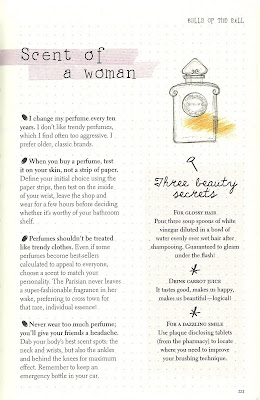 BELLE OF THE BALL
Scent of
a woman
I change my perfume every ten
years. I don't like trendy perfumes,
which I find often too aggressive. I
prefer older, classic brands.
When you buy a perfume, test
it on your skin, not a strip of paper.
Define your initial choice using the
paper strips, then test on the inside
of your wrist, leave the shop and
wear for a few hours before deciding
whether it's worthy of your bathroom
shelf.
Perfumes shouldn't be treated
like trendy clothes. Even if some
perfumes become best-sellers
calculated to appeal to everyone,
choose a scent to match your
personality. The Parisian never leaves
a super-fashionable fragrance in her
wake, preferring to cross town for
that rare, individual essence!
Never wear too much perfume;
you'll give your friends a headache.
Dab your body's best scent spots: the
neck and wrists, but also the ankles
and behind the knees for maximum
effect. Remember to keep an
emergency bottle in your car.
Three beauty
secrets
FOR GLOSSY HAIR
Pour three soup spoons of white
vinegar diluted in a bowl of
water evenly over wet hair after
shampooing. Guaranteed to gleam
under the flash!
DRINK CARROT JUICE
It tastes good, makes us happy,
makes us beautiful—logical!
FOR A DAZZLING SMILE
Use plaque disclosing tablets
(from the pharmacy) to locate
where you need to improve
your brushing technique.